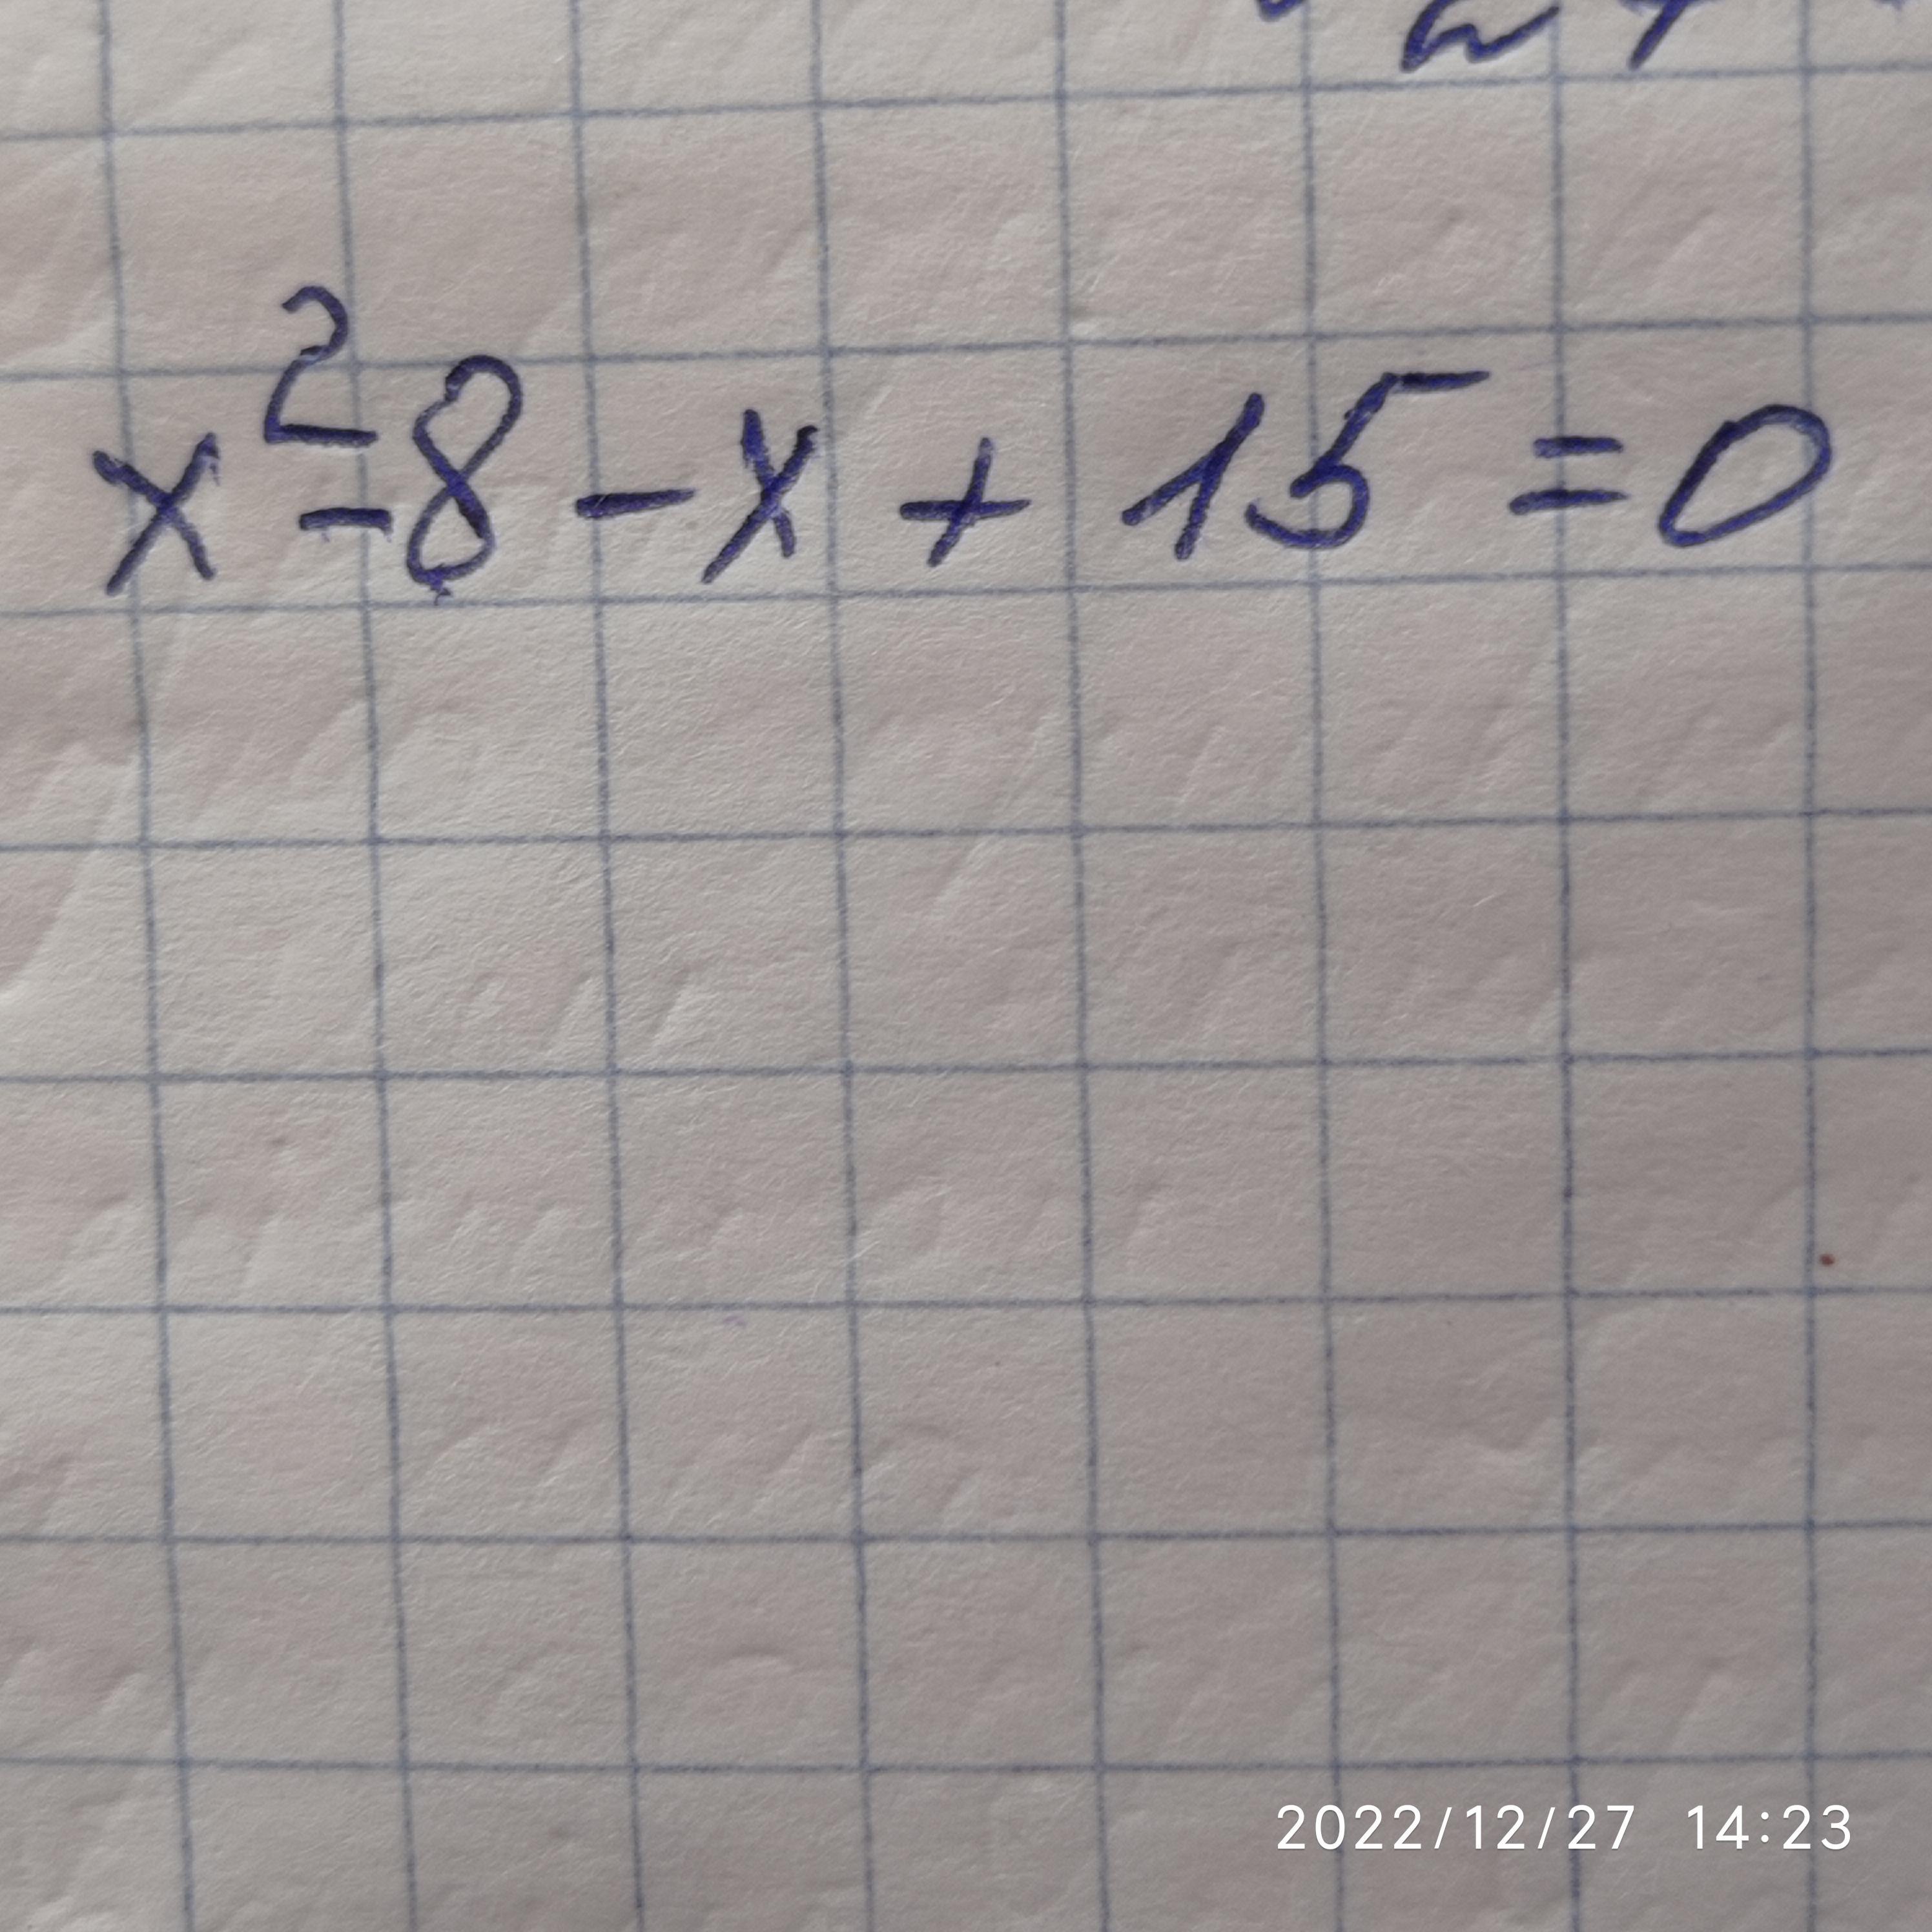 x²-8-x+15=0
2022/12/27 14:23